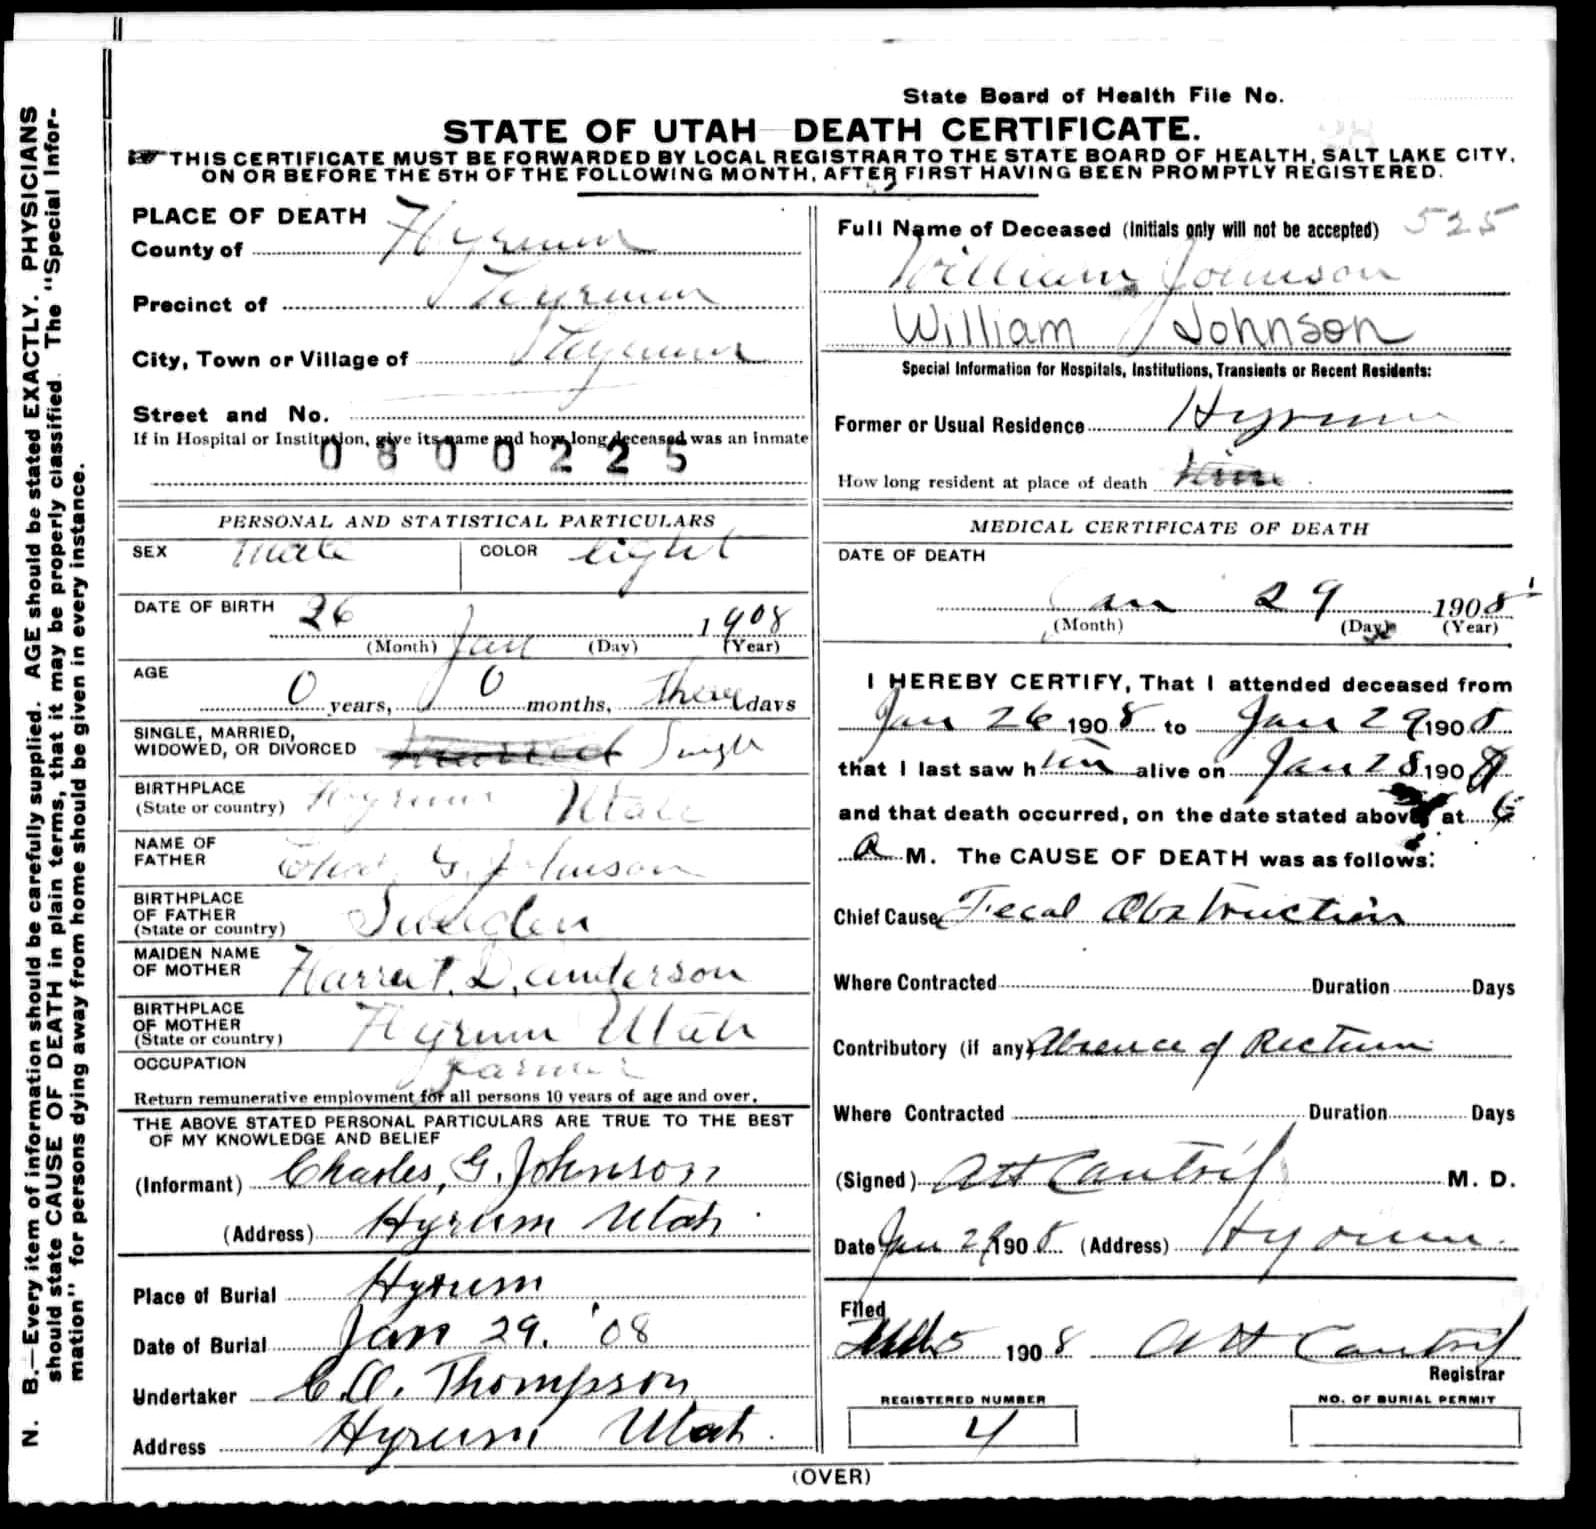 State Board of Health File No.
STATE OF UTAH DEATH CERTIFICATE.
THIS CERTIFICATE MUST BE FORWARDED BY LOCAL REGISTRAR TO THE STATE BOARD OF HEALTH, SALT LAKE CITY,
ON OR BEFORE THE 5TH OF THE FOLLOWING MONTH, AFTER FIRST HAVING BEEN PROMPTLY REGISTERED.
N. B.—Every item of information should be carefully supplied. AGE should be stated EXACTLY. PHYSICIANS
should state CAUSE OF DEATH in plain terms, that it may be properly classified. The "Special Infor-
mation" for persons dying away from home should be given in every instance.
PLACE OF DEATH
County of Hyrum
Precinct of Hyrum
City, Town or Village of Hyrum
Street and No.
If in Hospital or Institution, give its name and how long deceased was an inmate
0800225
PERSONAL AND STATISTICAL PARTICULARS
SEX Male COLOR light
DATE OF BIRTH 26 Jan 1908
(Month) (Day) (Year)
AGE
0 years, 0 months, three days
SINGLE, MARRIED,
WIDOWED, OR DIVORCED Single
BIRTHPLACE
(State or country) Hyrum Utah
NAME OF
FATHER Chas G. Johnson
BIRTHPLACE
OF FATHER
(State or country) Sweden
MAIDEN NAME
OF MOTHER Harret. D. anderson
BIRTHPLACE
OF MOTHER
(State or country) Hyrum Utah
OCCUPATION farmer
Return remunerative employment for all persons 10 years of age and over.
THE ABOVE STATED PERSONAL PARTICULARS ARE TRUE TO THE BEST
OF MY KNOWLEDGE AND BELIEF
(Informant) Charles, G. Johnson
(Address) Hyrum Utah.
Place of Burial Hyrum
Date of Burial Jan 29. '08
Undertaker C.O. Thompson
Address Hyrum Utah.
Full Name of Deceased (Initials only will not be accepted) 525
William Johnson
William Johnson
Special Information for Hospitals, Institutions, Transients or Recent Residents:
Former or Usual Residence Hyrum
How long resident at place of death
MEDICAL CERTIFICATE OF DEATH
DATE OF DEATH
Jan 29 1908
(Month) (Day) (Year)
I HEREBY CERTIFY, That I attended deceased from
Jan 26 1908 to Jan 29 1908
that I last saw him alive on Jan 28 1908
and that death occurred, on the date stated above, at 6
a M. The CAUSE OF DEATH was as follows:
Chief Cause Fecal Obstruction
Where Contracted Duration Days
Contributory (if any) Absence of Rectum
Where Contracted Duration Days
(Signed) A H Cantril M. D.
Date Jan 29 1908 (Address) Hyrum.
Filed
Feb 5 1908 A H Cantril
Registrar
REGISTERED NUMBER
4
NO. OF BURIAL PERMIT
(OVER)